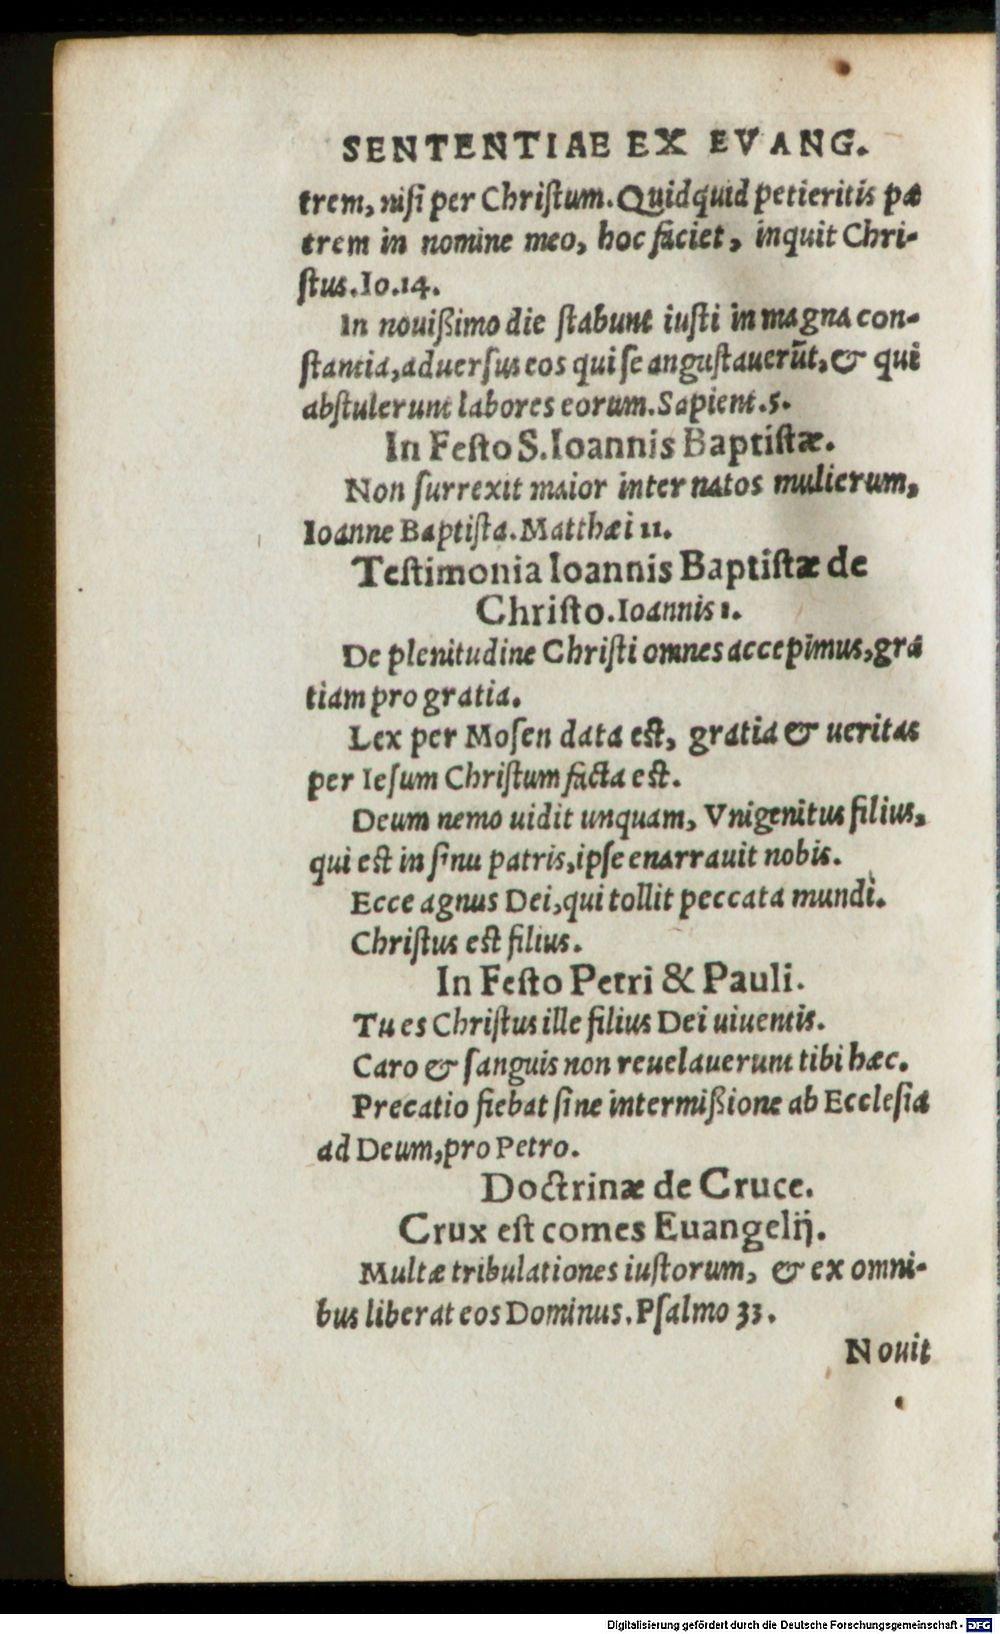 SENTENTIAE EX EVANG.
trem, niſi per Chriſtum. Quidquid petieritis pa
trem in nomine meo, hoc faciet, inquit Chri-
ſtus. Io. 14.
In nouißimo die ſtabunt iuſti in magna con-
ſtantia, aduerſus eos qui ſe anguſtauerũt, & qui
abſtulerunt labores eorum. Sapient. 5.
In Feſto S. Ioannis Baptiſtæ.
Non ſurrexit maior inter natos mulierum,
Ioanne Baptiſta. Matthæi 11.
Teſtimonia Ioannis Baptiſtæ de
Chriſto. Ioannis 1.
De plenitudine Chriſti omnes accepimus, gra
tiam pro gratia.
Lex per Moſen data eſt, gratia & ueritas
per Ieſum Chriſtum facta eſt.
Deum nemo uidit unquam, Vnigenitus filius,
qui eſt in ſinu patris, ipſe enarrauit nobis.
Ecce agnus Dei, qui tollit peccata mundi.
Chriſtus eſt filius.
In Feſto Petri & Pauli.
Tu es Chriſtus ille filius Dei uiuentis.
Caro & ſanguis non reuelauerunt tibi hæc.
Precatio fiebat ſine intermißione ab Eccleſia
ad Deum, pro Petro.
Doctrinæ de Cruce.
Crux eſt comes Euangelij.
Multæ tribulationes iuſtorum, & ex omni-
bus liberat eos Dominus. Pſalmo 33.
Nouit
Digitalisierung gefördert durch die Deutsche Forschungsgemeinschaft - DFG